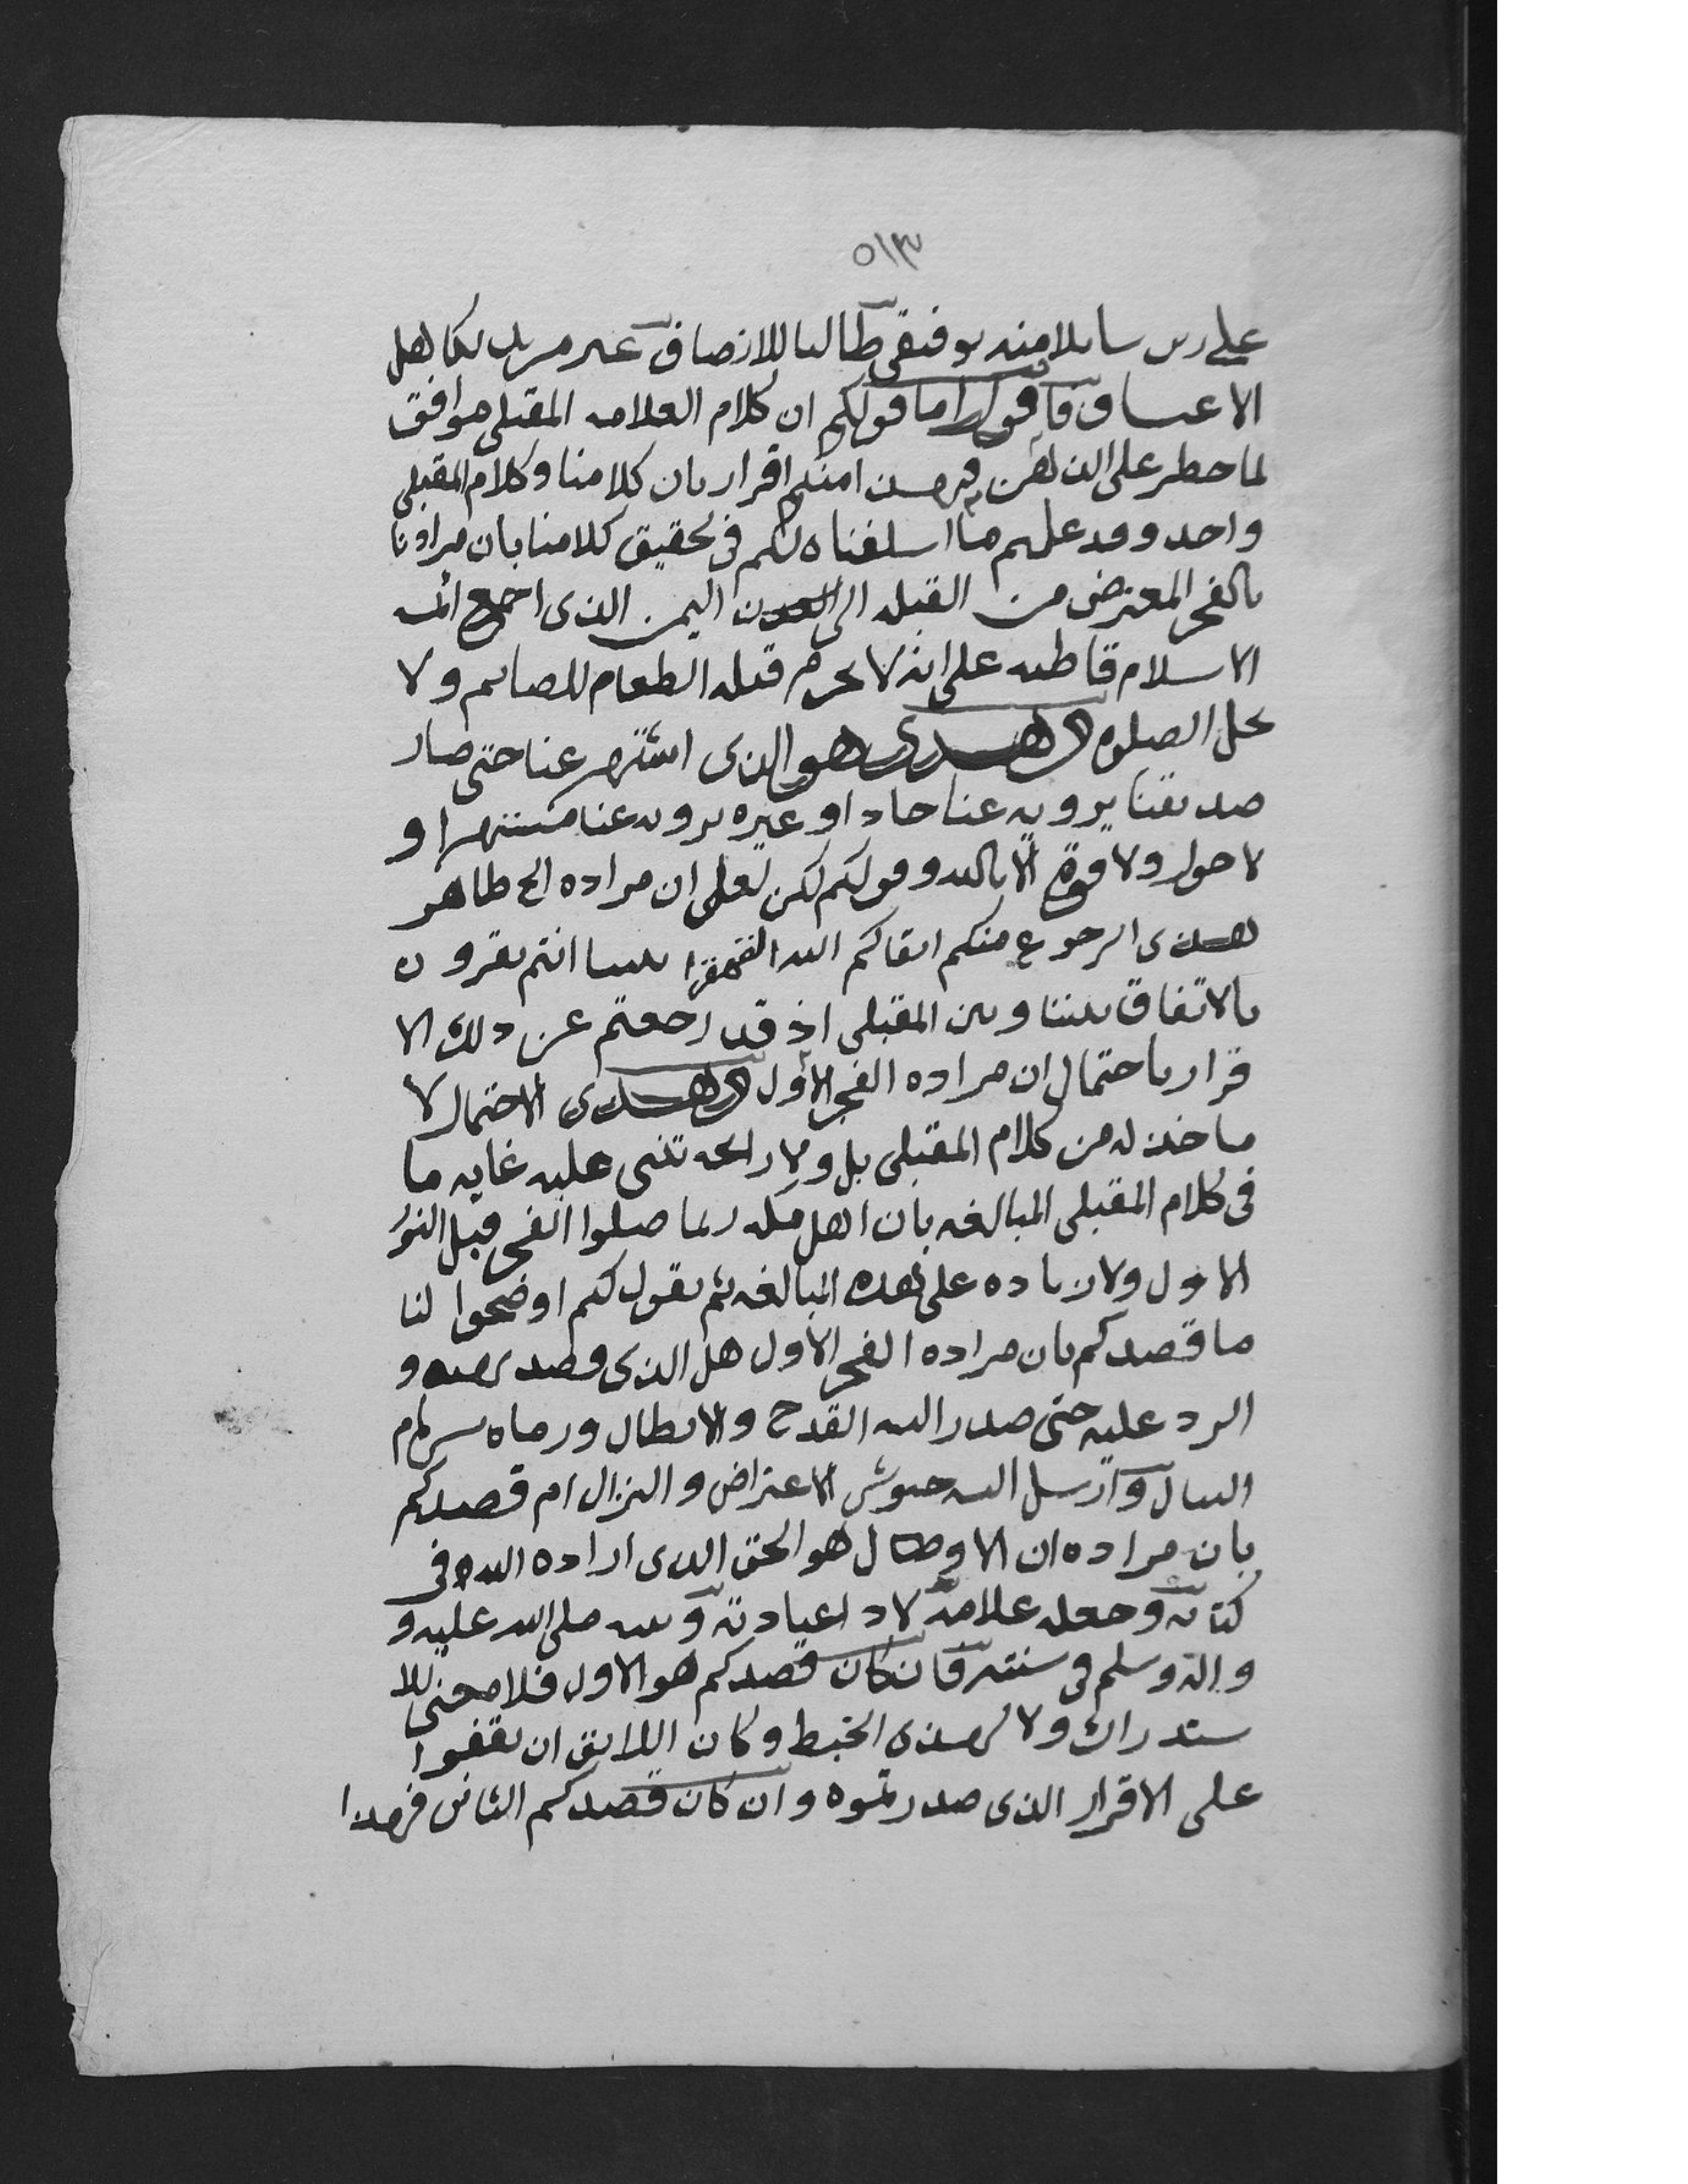 ٥١٣
على ربى سايلا منه توفيقى طالبا للانصاف غير مريد لكاهل
الاعتساف فاقول اما قولكم ان كلام العلامه المقبلى موافق
لما خطر على الذهن فهذا منكم اقرار بان كلامنا وكلام المقبلى
واحد وقد علمتم مما اسلفناه لكم فى تحقيق كلامنا بان مرادنا
بالفجر المعترض من القبله الى اليمن الذى اجمع ائمه
الاسلام قاطبه على انه لا يحرم قبله الطعام للصايم ولا
تحل الصلوه اذ هذا هو الذى اشتهر عنا حتى صار
صديقنا يرويه عنا جادا وغيره يرويه عنا مستهزا و
لا حول ولا قوة الا بالله وقولكم لكن لعل ان مراده الخ ظاهر
هذا الرجوع منكم ابقاكم الله القهقرا بينما انتم تقرون
بالاتفاق بيننا وبين المقبلى اذ قد رجعتم عن ذلك الا
قرار باحتمال ان مراده الفجر الاول اذ هذا الاحتمال لا
ماخذ له من كلام المقبلى بل ولا رايحه تنبى عليه غايه ما
فى كلام المقبلى المبالغه بان اهل مكه ربما صلوا الفجر قبل النور
الاول ولا زياده على هذه المبالغه ثم نقول لكم اوضحوا لنا
ما قصدكم بان مراده الفجر الاول هل الذى قصد و
الرد عليه حتى صدر اليه القدح والابطال ورماه بسهام
النبال وارسل اليه جيوش الاعتراض والنزال ام قصدكم
بان مراده ان الاول هو الحق الذى اراده الله فى
كتابه وجعله علامة لادا عبادته وبينه صلى الله عليه و
واله وسلم فى سنته فان كان قصدكم هو الاول فلا معنى للا
ستدراك ولا لهذا الخبط وكان اللايق ان تقفوا
على الاقرار الذى صدرتموه وان كان قصدكم الثانى فهذا